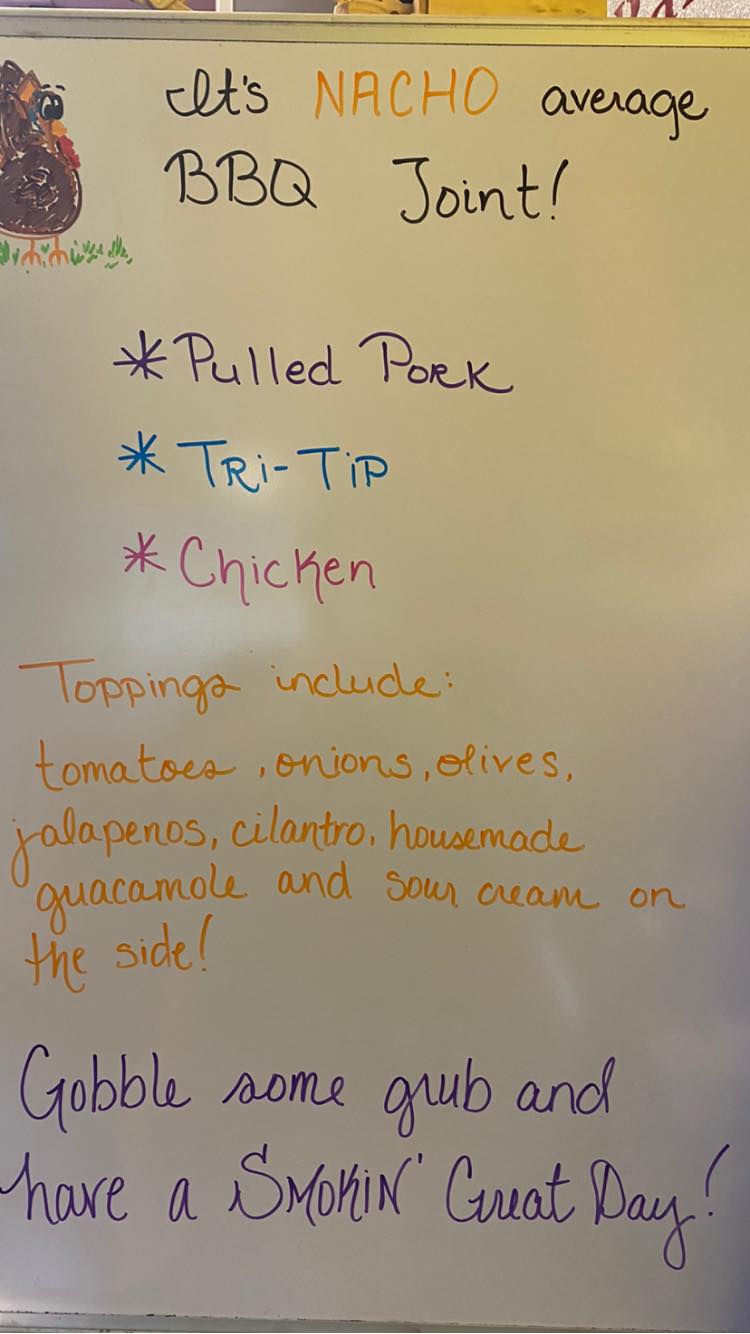 It's NACHO average
BBQ Joint!
*Pulled Pork
*Tri-Tip
*Chicken
Toppings include:
tomatoes, onions, olives,
jalapenos, cilantro, housemade
guacamole and sour cream on
the side!
Gobble some grub and
have a Smokin' Great Day!